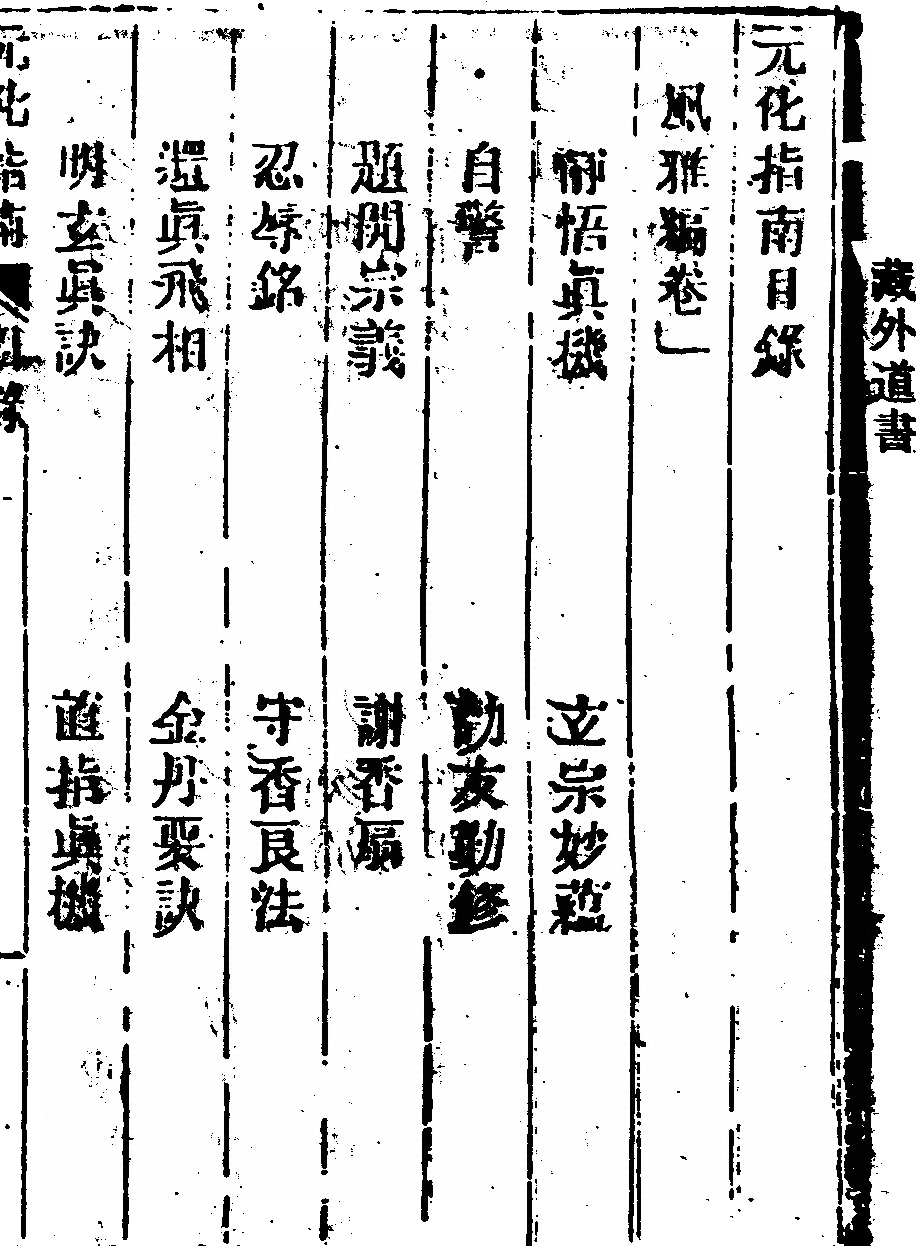 藏外道書
元化指南目錄
風雅編卷
悟眞機　立宗妙蘊
自警　勸友勤修
題開宗義　謝香扇
忍辱銘　守香良法
還眞飛相　金丹訣
明玄眞訣　直指眞機
元化指南　目錄